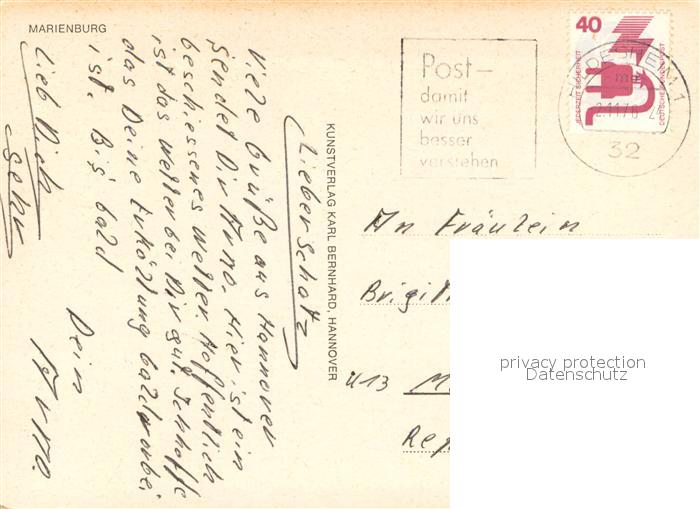 MARIENBURG
Lieber Schatz
Viele Grüße aus Hannover
sendet Dir Arno. Hier ist ein
beschissenes Wetter. Hoffentlich
ist das Wetter bei Dir gut. Ich hoffe
das Deine Erkältung bald vorbei
ist. Bis bald
Lieb Dich
sehr
Dein
Arno.
KUNSTVERLAG KARL BERNHARD, HANNOVER
Post –
damit
wir uns
besser
verstehen
40
JEDERZEIT SICHERHEIT
DEUTSCHE BUNDESPOST
HILDESHEIM 1
32
An Fräulein
Brigit
413 M
Rep
privacy protection
Datenschutz